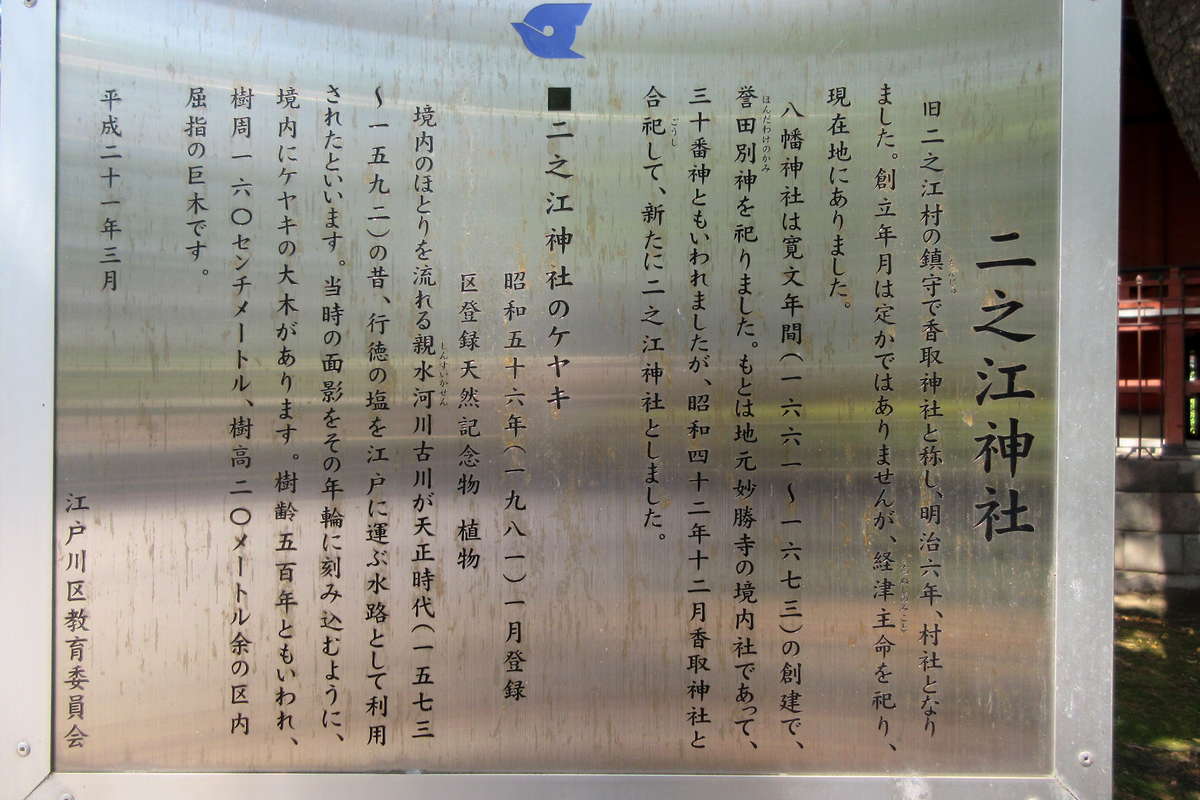 二之江神社
旧二之江村の鎮守で香取神社と称し、明治六年、村社となり
ました。創立年月は定かではありませんが、経津主命を祀り、
現在地にありました。
八幡神社は寛文年間(一六六一～一六七三)の創建で、
誉田別神を祀りました。もとは地元妙勝寺の境内社であって、
ほんだわけのかみ
三十番神ともいわれましたが、昭和四十二年十二月香取神社と
合祀して、新たに二之江神社としました。
ごうし
■二之江神社のケヤキ
昭和五十六年(一九八一)一月登録
区登録天然記念物 植物
境内のほとりを流れる親水河川古川が天正時代(一五七三
しんすいかせん
～一五九二)の昔、行徳の塩を江戸に運ぶ水路として利用
されたといいます。当時の面影をその年輪に刻み込むように、
境内にケヤキの大木があります。樹齢五百年ともいわれ、
樹周一六〇センチメートル、樹高二〇メートル余の区内
屈指の巨木です。
平成二十一年三月
江戸川区教育委員会